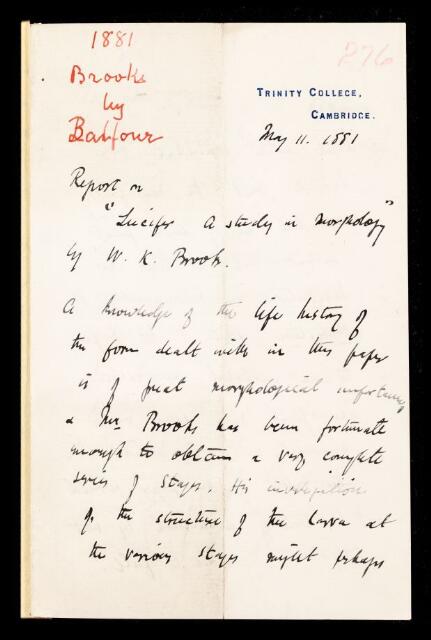 1881
276
Brooks
by
Balfour
TRINITY COLLEGE,
CAMBRIDGE.
May 11. 1881
Report on
"Lucifer A study in morphology"
by W. K. Brooks.
A knowledge of the life history of
the form dealt with in this paper
is of great morphological importance
& Mr. Brooks has been fortunate
enough to obtain a very complete
series of stages. His investigation
of the structure of the larva at
the various stages might perhaps